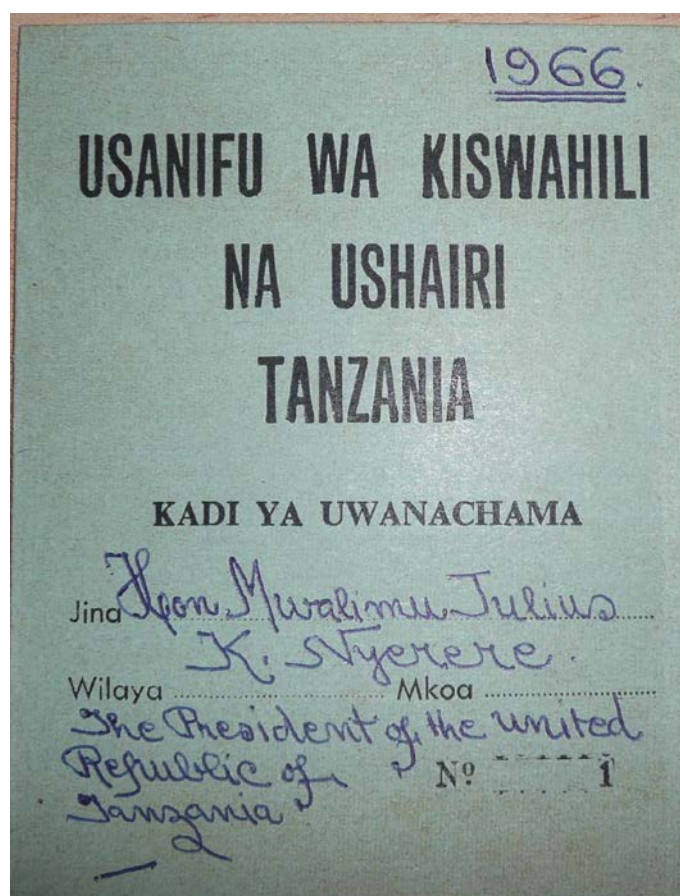 1966.
USANIFU WA KISWAHILI
NA USHAIRI
TANZANIA
KADI YA UWANACHAMA
Jina Hon Mwalimu Julius
K. Nyerere.
Wilaya Mkoa
The President of the United
Republic of
Nº 1
Tanzania